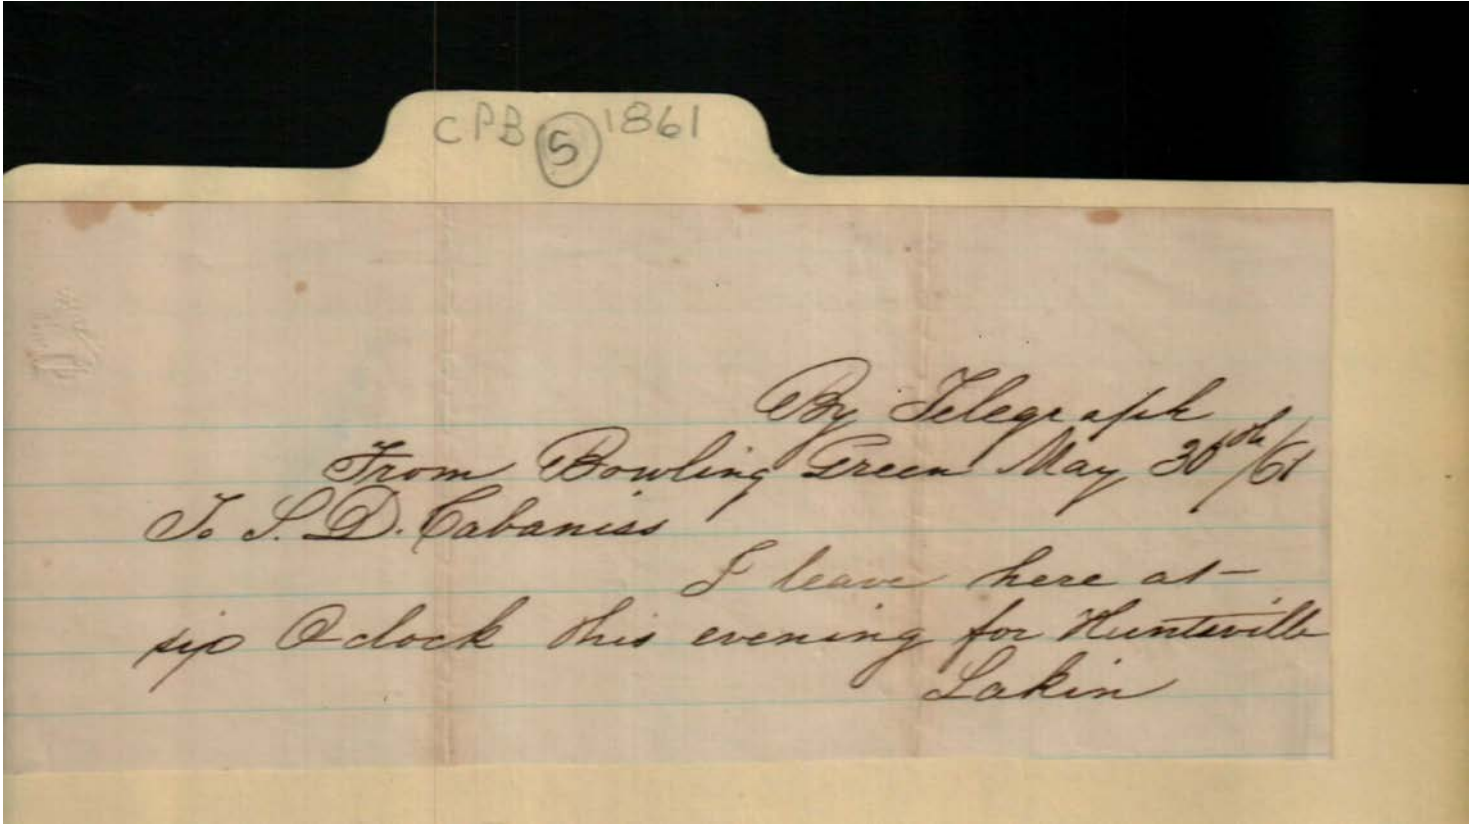 CPB 5 1861
By Telegraph
From Bowling Green May 30th/61
To S. D. Cabaniss
I leave here at
six O clock this evening for Huntsville
Lakin